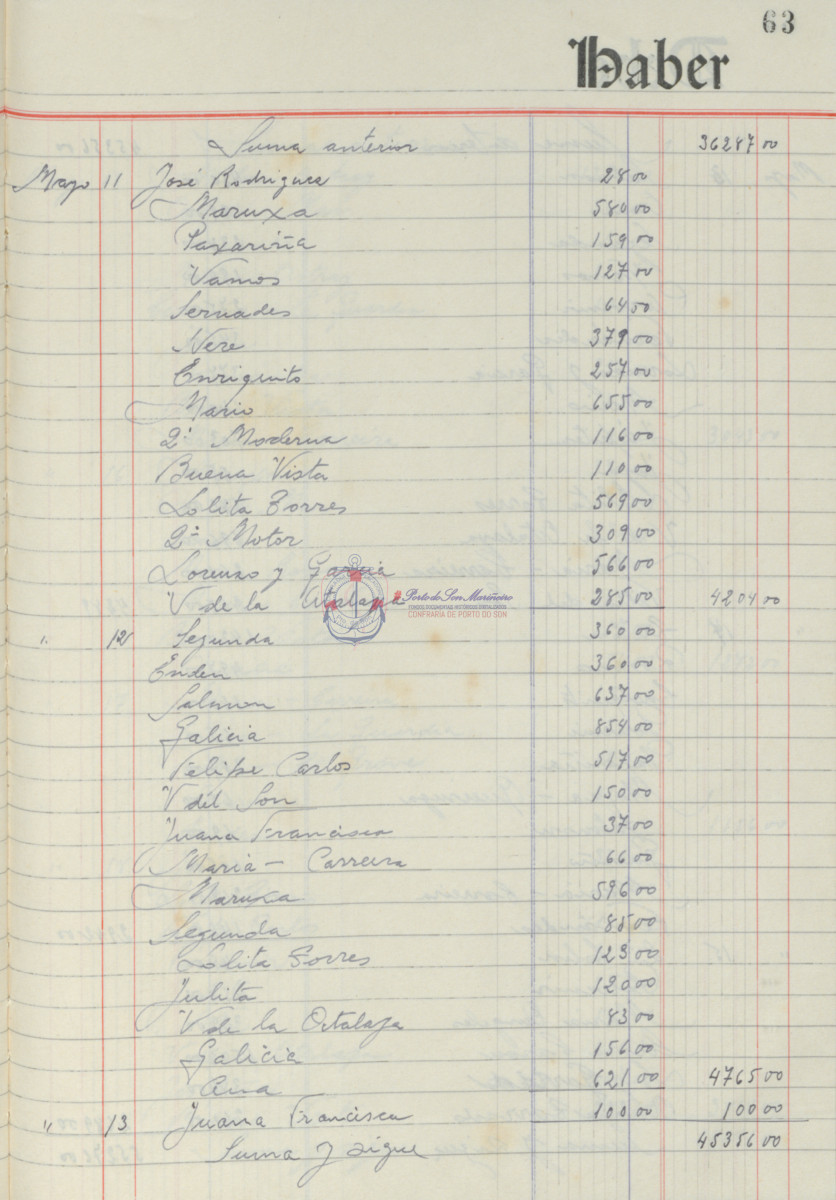 63
Haber
Suma anterior 36287 00
Mayo 11 José Rodriguez 28 00
Maruxa 580 00
Paxariña 159 00
Vamos 127 00
Servades 64 00
Nere 379 00
Enriquito 257 00
Mario 655 00
2ª Moderna 116 00
Buena Vista 110 00
Lolita Torres 569 00
2ª Motor 309 00
Lorenzo y Garcia 566 00
V de la Atalaya 285 00 4204 00
Porto do Son Mariñeiro
FONDOS DOCUMENTAIS HISTÓRICOS DIXITALIZADOS
CONFRARÍA DE PORTO DO SON
" 12 Segunda 360 00
Enden 360 00
Salmon 637 00
Galicia 854 00
Felipe Carlos 517 00
V del Son 150 00
Juana Francisca 37 00
Maria - Carreira 66 00
Maruxa 596 00
Segunda 85 00
Lolita Torres 123 00
Julita 120 00
V de la Atalaya 83 00
Galicia 156 00
Ana 621 00 4765 00
" 13 Juana Francisca 100 00 100 00
Suma y sigue 45356 00